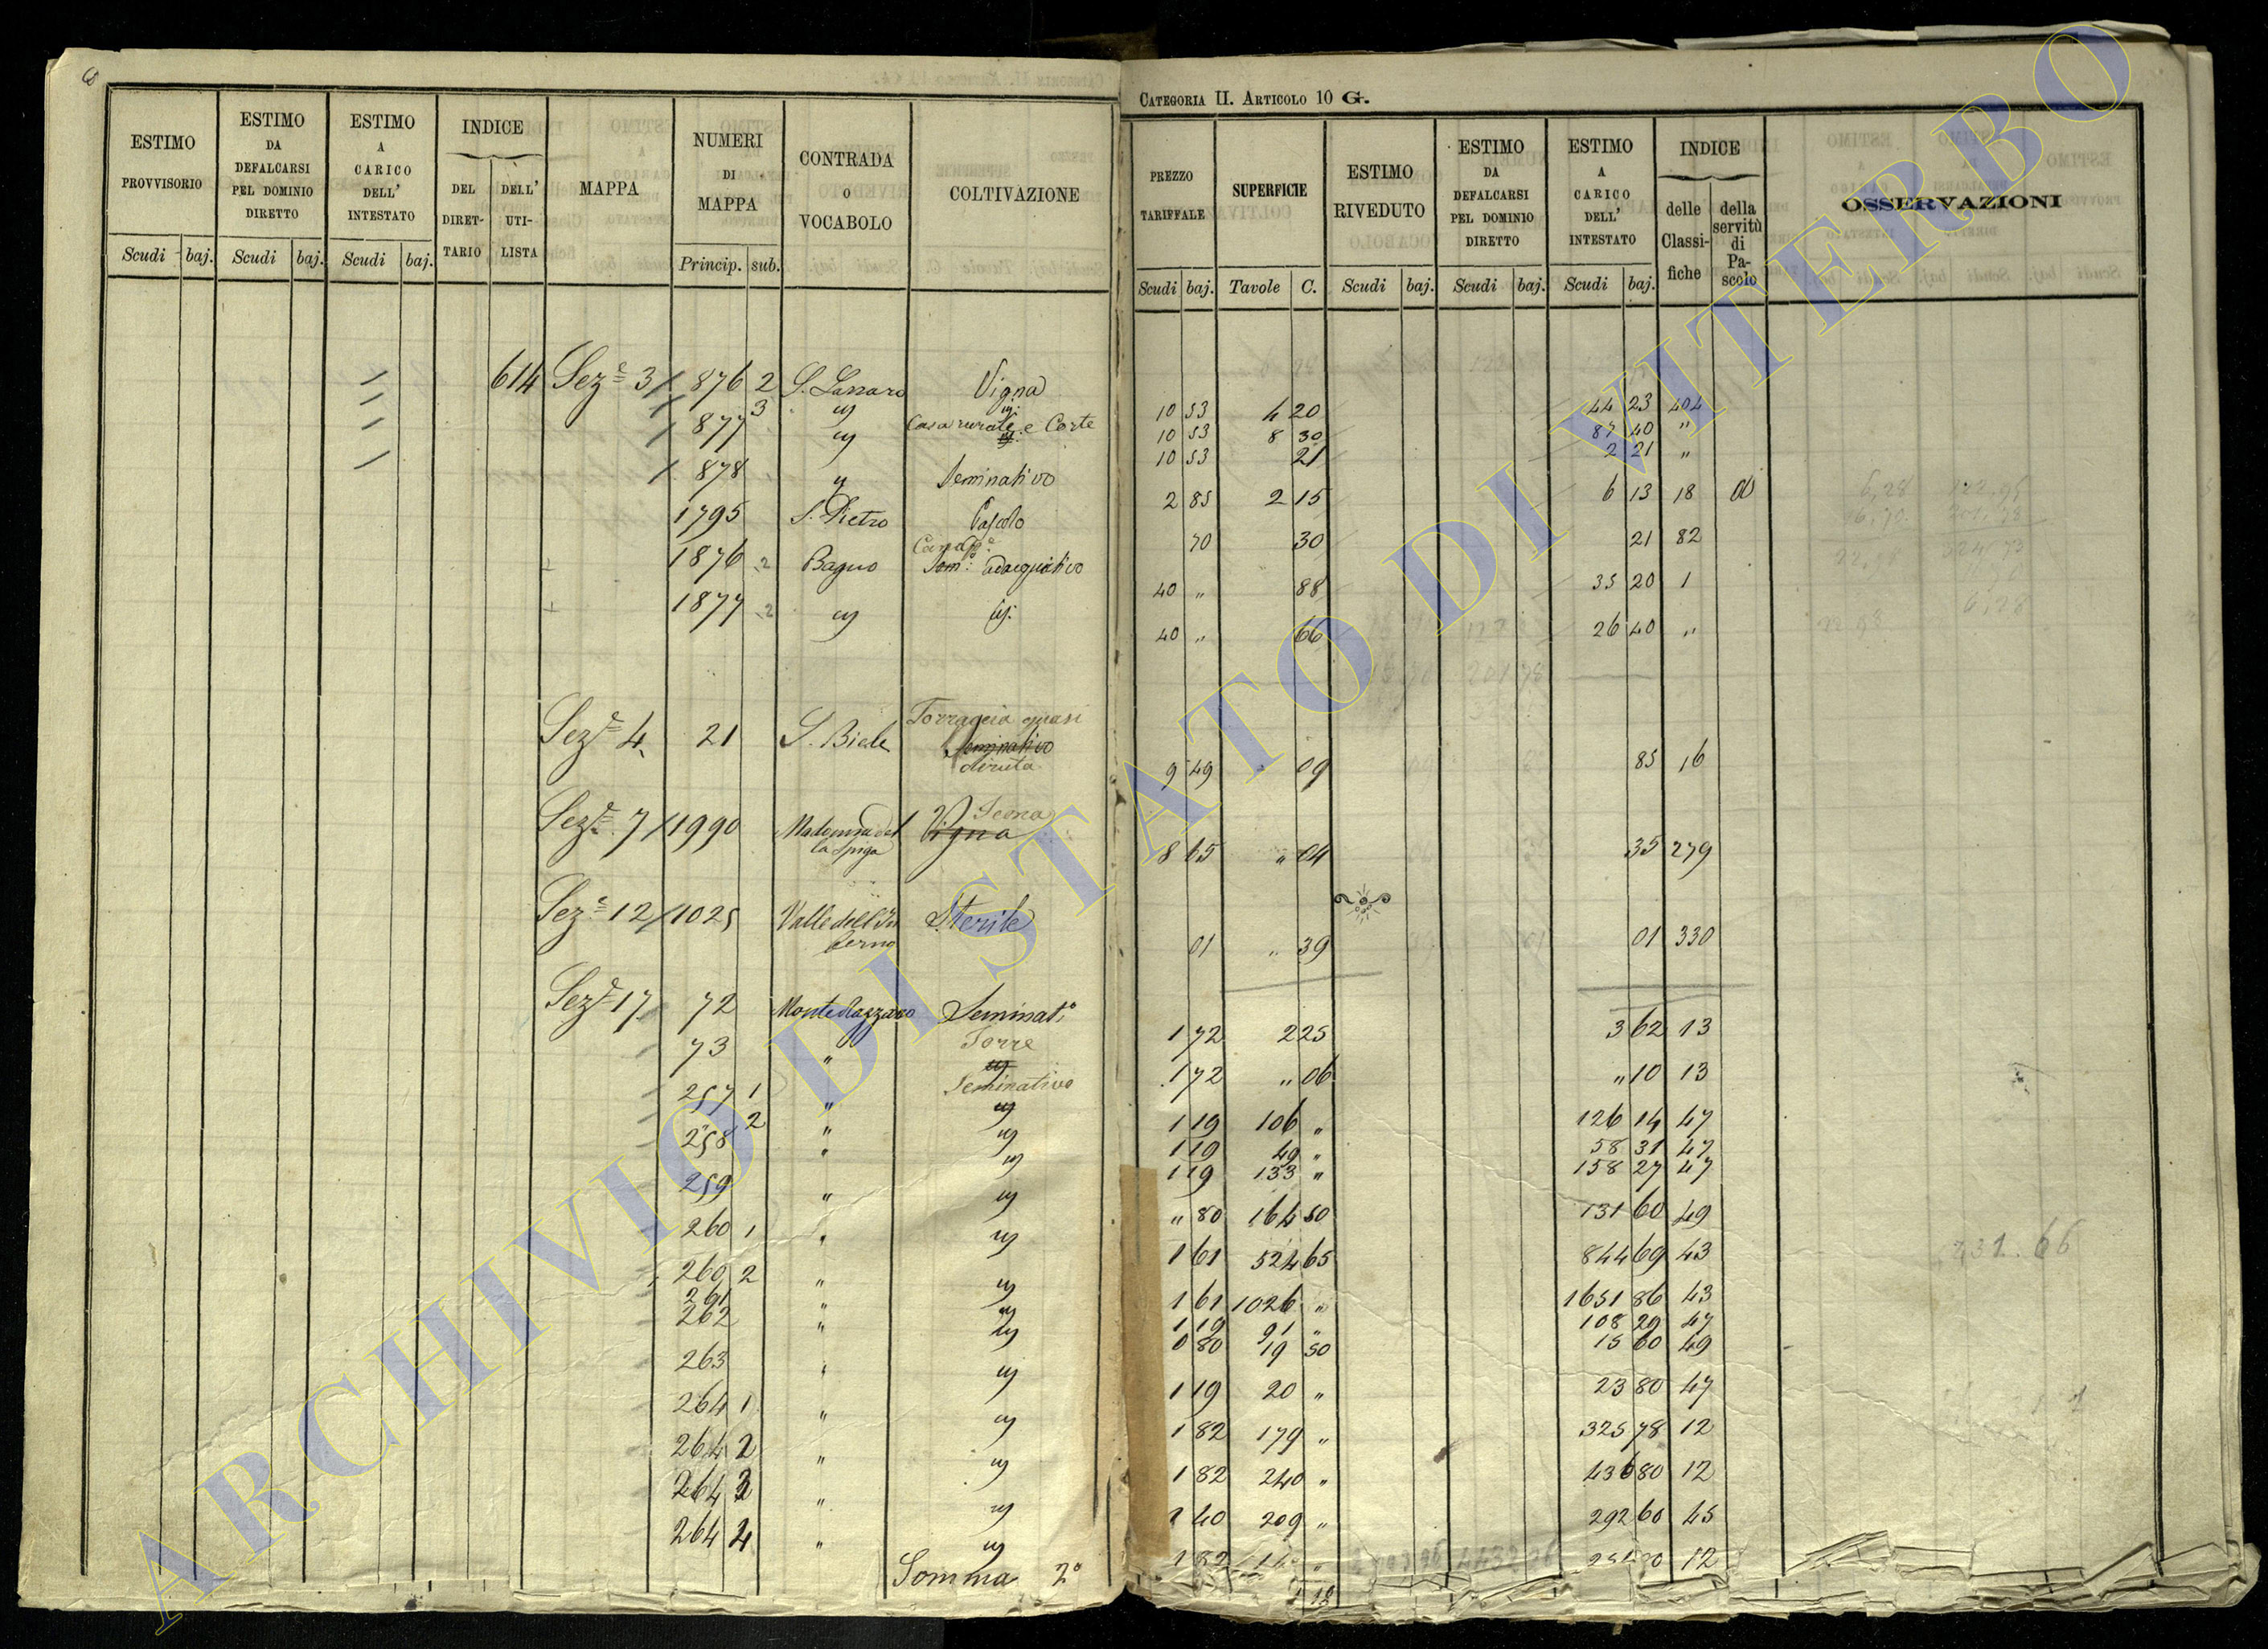 CATEGORIA II. ARTICOLO 10 G.
ESTIMO PROVVISORIO
Scudi baj.
ESTIMO DA DEFALCARSI PEL DOMINIO DIRETTO
Scudi baj.
ESTIMO A CARICO DELL' INTESTATO
Scudi baj.
INDICE
DEL DIRET-TARIO
DELL' UTI-LISTA
MAPPA
NUMERI DI MAPPA
Princip. sub.
CONTRADA o VOCABOLO
COLTIVAZIONE
PREZZO TARIFFALE
Scudi baj.
SUPERFICIE
Tavole C.
ESTIMO RIVEDUTO
Scudi baj.
ESTIMO DA DEFALCARSI PEL DOMINIO DIRETTO
Scudi baj.
ESTIMO A CARICO DELL' INTESTATO
Scudi baj.
INDICE
delle Classi-fiche
della servitù di Pa-scolo
OSSERVAZIONI
614 Sez.e 3 876 2 S. Lazzaro Vigna 10 53 4 20 44 23 404
3 " id: 10 53 8 30 87 40 "
877 " Casa rurale e Corte 10 53 21 2 21 "
878 " Seminativo 2 85 2 15 6 13 18
1795 S. Pietro Pascolo 70 30 21 82
1876 2 Bagno Canap.e Sem: adacquativo 40 " 88 35 20 1
1877 2 " id: 40 " 66 26 40 "
Sez.e 4 21 S. Biele Torraccia quasi
Seminativo
diruta 9 49 " 09 85 16
Sez.e 7 1990 Madonna del la Spiga Vigna 8 65 " 04 35 279
Sez.e 12 1025 Valle dell'In ferno Sterile 01 " 39 01 330
Sez.e 17 72 Monte Razzano Seminat.o 1 72 2 25 3 62 13
73 " Torre 1 72 " 06 " 10 13
257 1 " Seminativo 1 19 106 " 126 14 47
2 " id 1 19 49 " 58 31 47
258 " id 1 19 133 " 158 27 47
259 " id " 80 164 50 131 60 49
260 1 " id 1 61 524 65 844 69 43
260 2 " id 1 61 1026 " 1651 86 43
261 " id 1 19 91 " 108 29 47
262 " id 0 80 19 50 15 60 49
263 " id 1 19 20 " 23 80 47
264 1 " id 1 82 179 " 325 78 12
264 2 " id 1 82 240 " 436 80 12
264 3 " id 1 40 209 " 292 60 45
264 4 " id 1 82 12
Somma 2°
ARCHIVIO DI STATO DI VITERBO